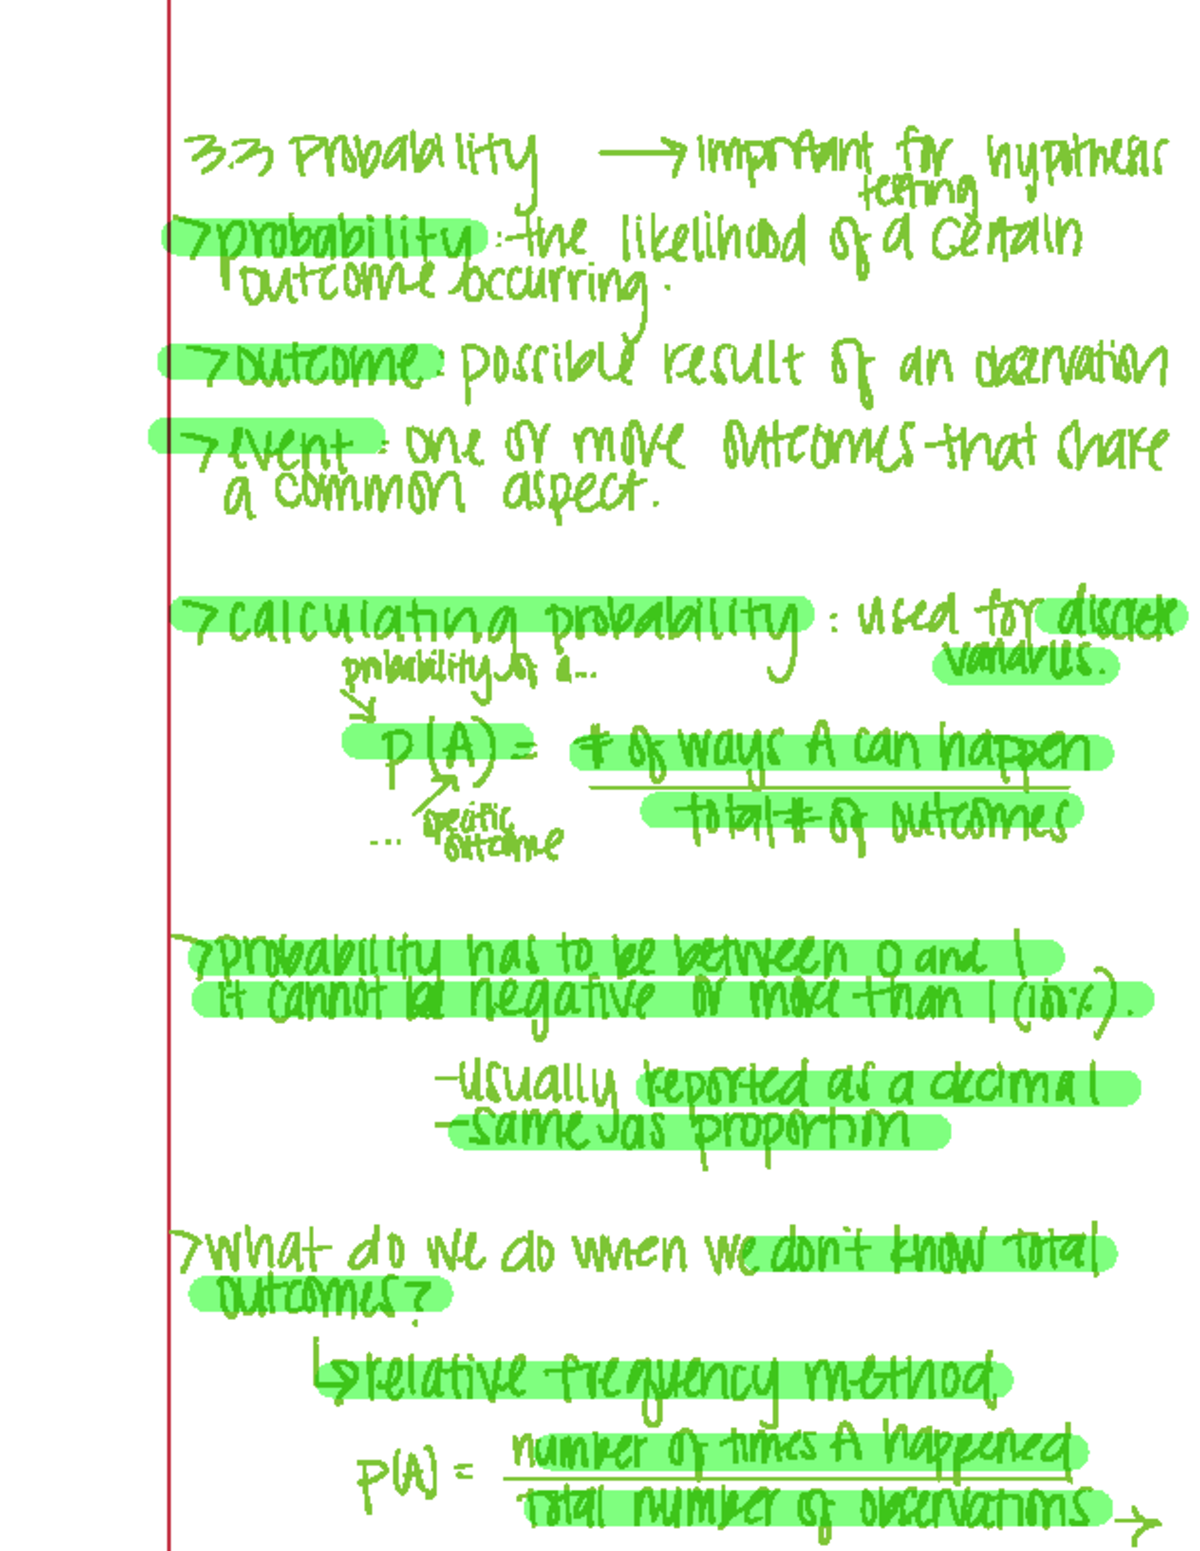 3.3 probability → important for hypothesis
testing
>probability: the likelihood of a certain
outcome occurring.
>outcome: possible result of an observation
>event: one or more outcomes that share
a common aspect.
>calculating probability: used for discrete
variables.
probability of a...
p(A) = # of ways A can happen
total # of outcomes
... specific
outcome
>probability has to be between 0 and 1
it cannot be negative or more than 1 (100%).
-usually reported as a decimal
-same as proportion
>what do we do when we don't know total
outcomes?
↳relative frequency method
p(A) = number of times A happened
total number of observations →